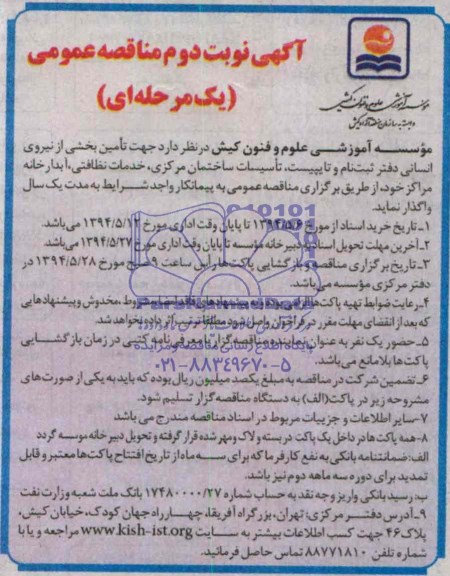 آگهی نوبت دوم مناقصه عمومی
(یک مرحله‌ای)
مؤسسه آموزشی علوم و فنون کیش
وابسته به سازمان منطقه آزاد کیش
مؤسسه آموزشی علوم و فنون کیش در نظر دارد جهت تأمین بخشی از نیروی
انسانی دفتر ثبت‌نام و تایپیست، تأسیسات ساختمان مرکزی، خدمات نظافتی، آبدارخانه
مراکز خود، از طریق برگزاری مناقصه عمومی به پیمانکار واجد شرایط به مدت یک سال
واگذار نماید.
۱ـ تاریخ خرید اسناد از مورخ ۱۳۹۴/۵/۶ تا پایان وقت اداری مورخ ۱۳۹۴/۵/۱۲ می‌باشد.
۲ـ آخرین مهلت تحویل اسناد به دبیرخانه مؤسسه تا پایان وقت اداری مورخ ۱۳۹۴/۵/۲۷ می‌باشد.
۳ـ تاریخ برگزاری مناقصه و بازگشایی پاکت‌ها رأس ساعت ۹ صبح مورخ ۱۳۹۴/۵/۲۸ در
دفتر مرکزی مؤسسه می‌باشد.
۴ـ رعایت ضوابط تهیه پاکت‌ها الزامی بوده به پیشنهادهای فاقد امضا، مشروط، مخدوش و پیشنهادهایی
که بعد از انقضای مهلت مقرر در فراخوان واصل شود مطلقا ترتیب اثر داده نخواهد شد.
۵ـ حضور یک نفر به عنوان نماینده مناقصه گزار با معرفی‌نامه کتبی در زمان بازگشایی
پاکت‌ها بلامانع می‌باشد.
پایگاه اطلاع رسانی مناقصه و مزایده
۰۲۱-۸۸۳۴۹۶۷۰-۵
۶ـ تضمین شرکت در مناقصه به مبلغ یکصد میلیون ریال بوده که باید به یکی از صورت‌های
مشروحه زیر در پاکت (الف) به دستگاه مناقصه گزار تسلیم شود.
۷ـ سایر اطلاعات و جزییات مربوط در اسناد مناقصه مندرج می باشد
۸ـ همه پاکت‌ها در داخل یک پاکت در بسته و لاک و مهر شده قرار گرفته و تحویل دبیرخانه موسسه گردد
الف: ضمانتنامه بانکی به نفع کارفرما که برای سه ماه از تاریخ افتتاح پاکت‌ها معتبر و قابل
تمدید برای دوره سه ماهه دوم نیز باشد.
ب: رسید بانکی واریز وجه نقد به حساب شماره ۱۷۴۸۰۰۰۰/۲۷ بانک ملت شعبه وزارت نفت
۹ـ آدرس دفتر مرکزی: تهران، بزرگراه آفریقا، چهارراه جهان کودک، خیابان کیش،
پلاک ۴۶ جهت کسب اطلاعات بیشتر به سایت www.kish-ist.org مراجعه و یا با
شماره تلفن ۸۸۷۷۱۸۱۰ تماس حاصل فرمائید.